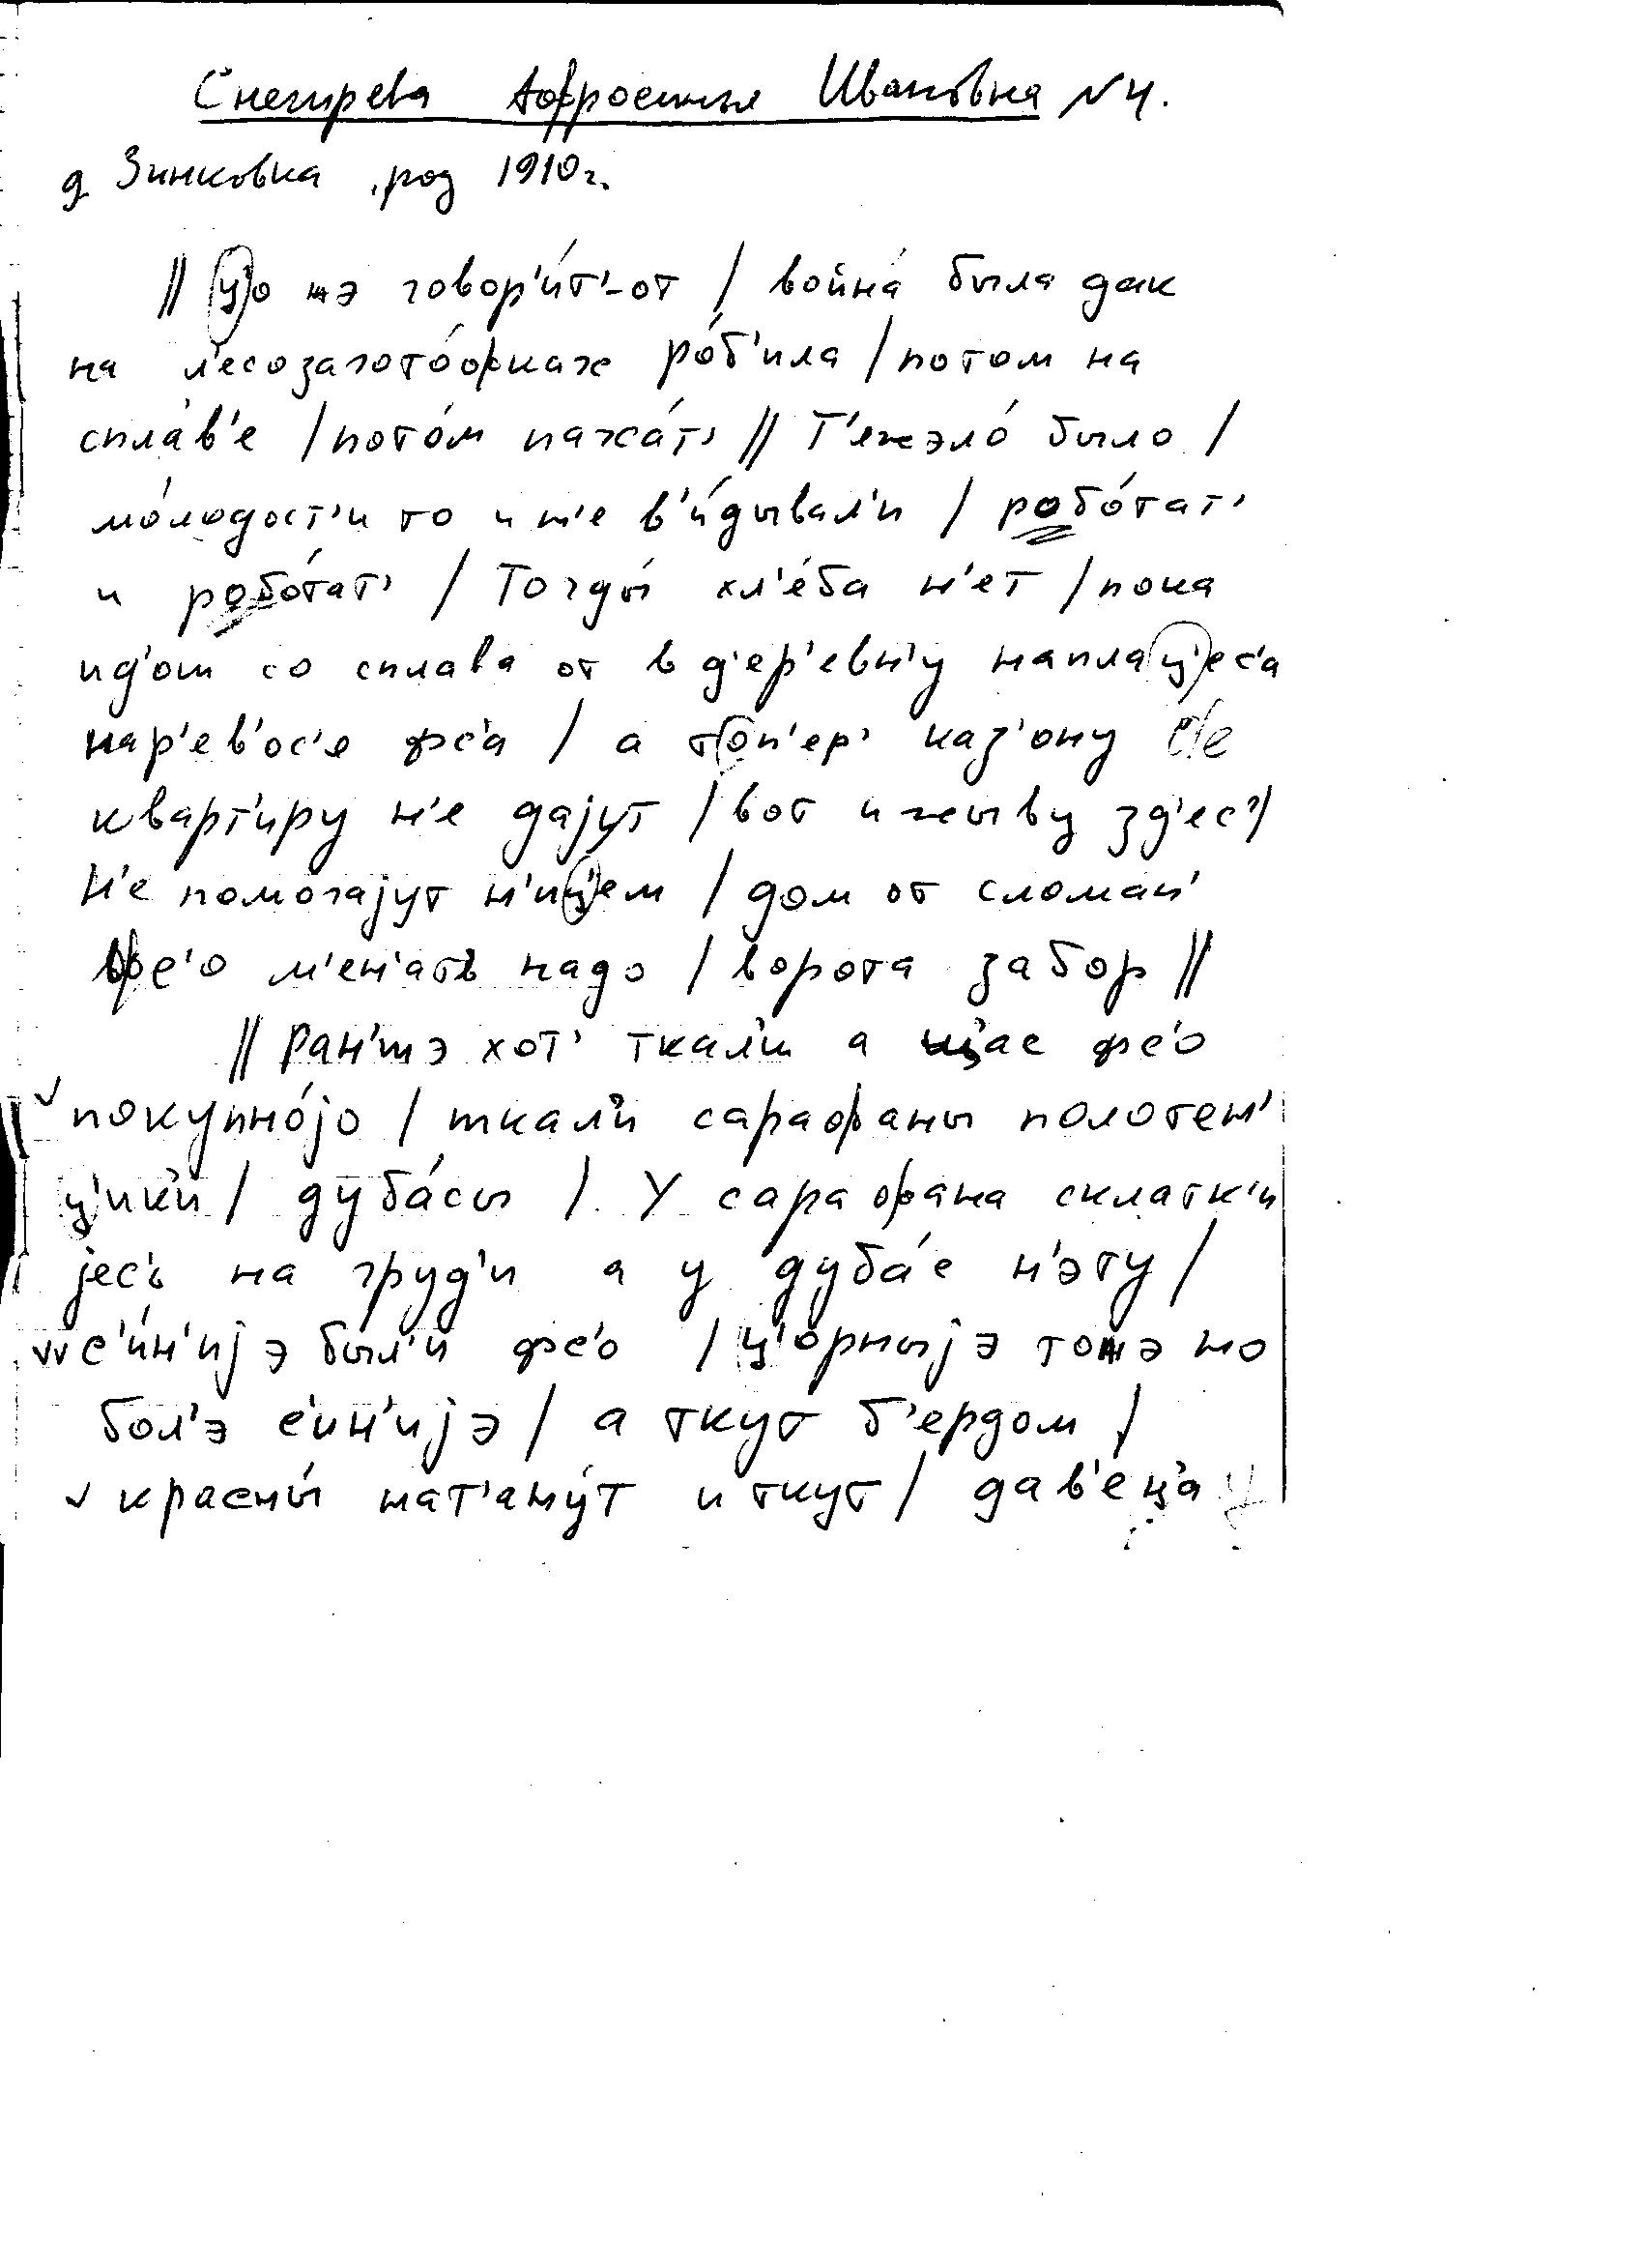 Снегирева Афросинья Ивановна N4.
д Зинковка, род 1910г.
// ц'о жэ говор'и́т'-от / война́ была дак
на л'есозагото́фках ро́б'ила / потом на
спла́в'е / пото́м паха́т' // Т'ежэло́ было /
мо́лодост'и то и н'е в'и́дывал'и / робо́тат'
и робо́тат' / Тогды́ хл'е́ба н'ет / пока
ид'ош со сплава от в д'ер'евн'у наплац'ес'а
нар'ев'ос'е фс'а / а топ'ер' каз'ону
кварт'иру н'е дајут / вот и жыву зд'ес' /
Н'е помогајут н'иц'ем / дом от сломан'
фс'о м'ен'ать надо / ворота забор //
// Ран'шэ хот' ткал'и а щас фс'о
покупно́јо / ткал'и сарафаны полотен'
ц'ик'и / дуба́сы / У сарафана склатк'и
јес'ь на груд'и а у дуба́с н'эту /
с'и́н'ијэ был'и фс'о / ц'орныјэ тожэ но
бол'э с'ин'ијэ / а ткут б'ердом /
красны́ нат'ану́т и ткут / дав'е́ц'а